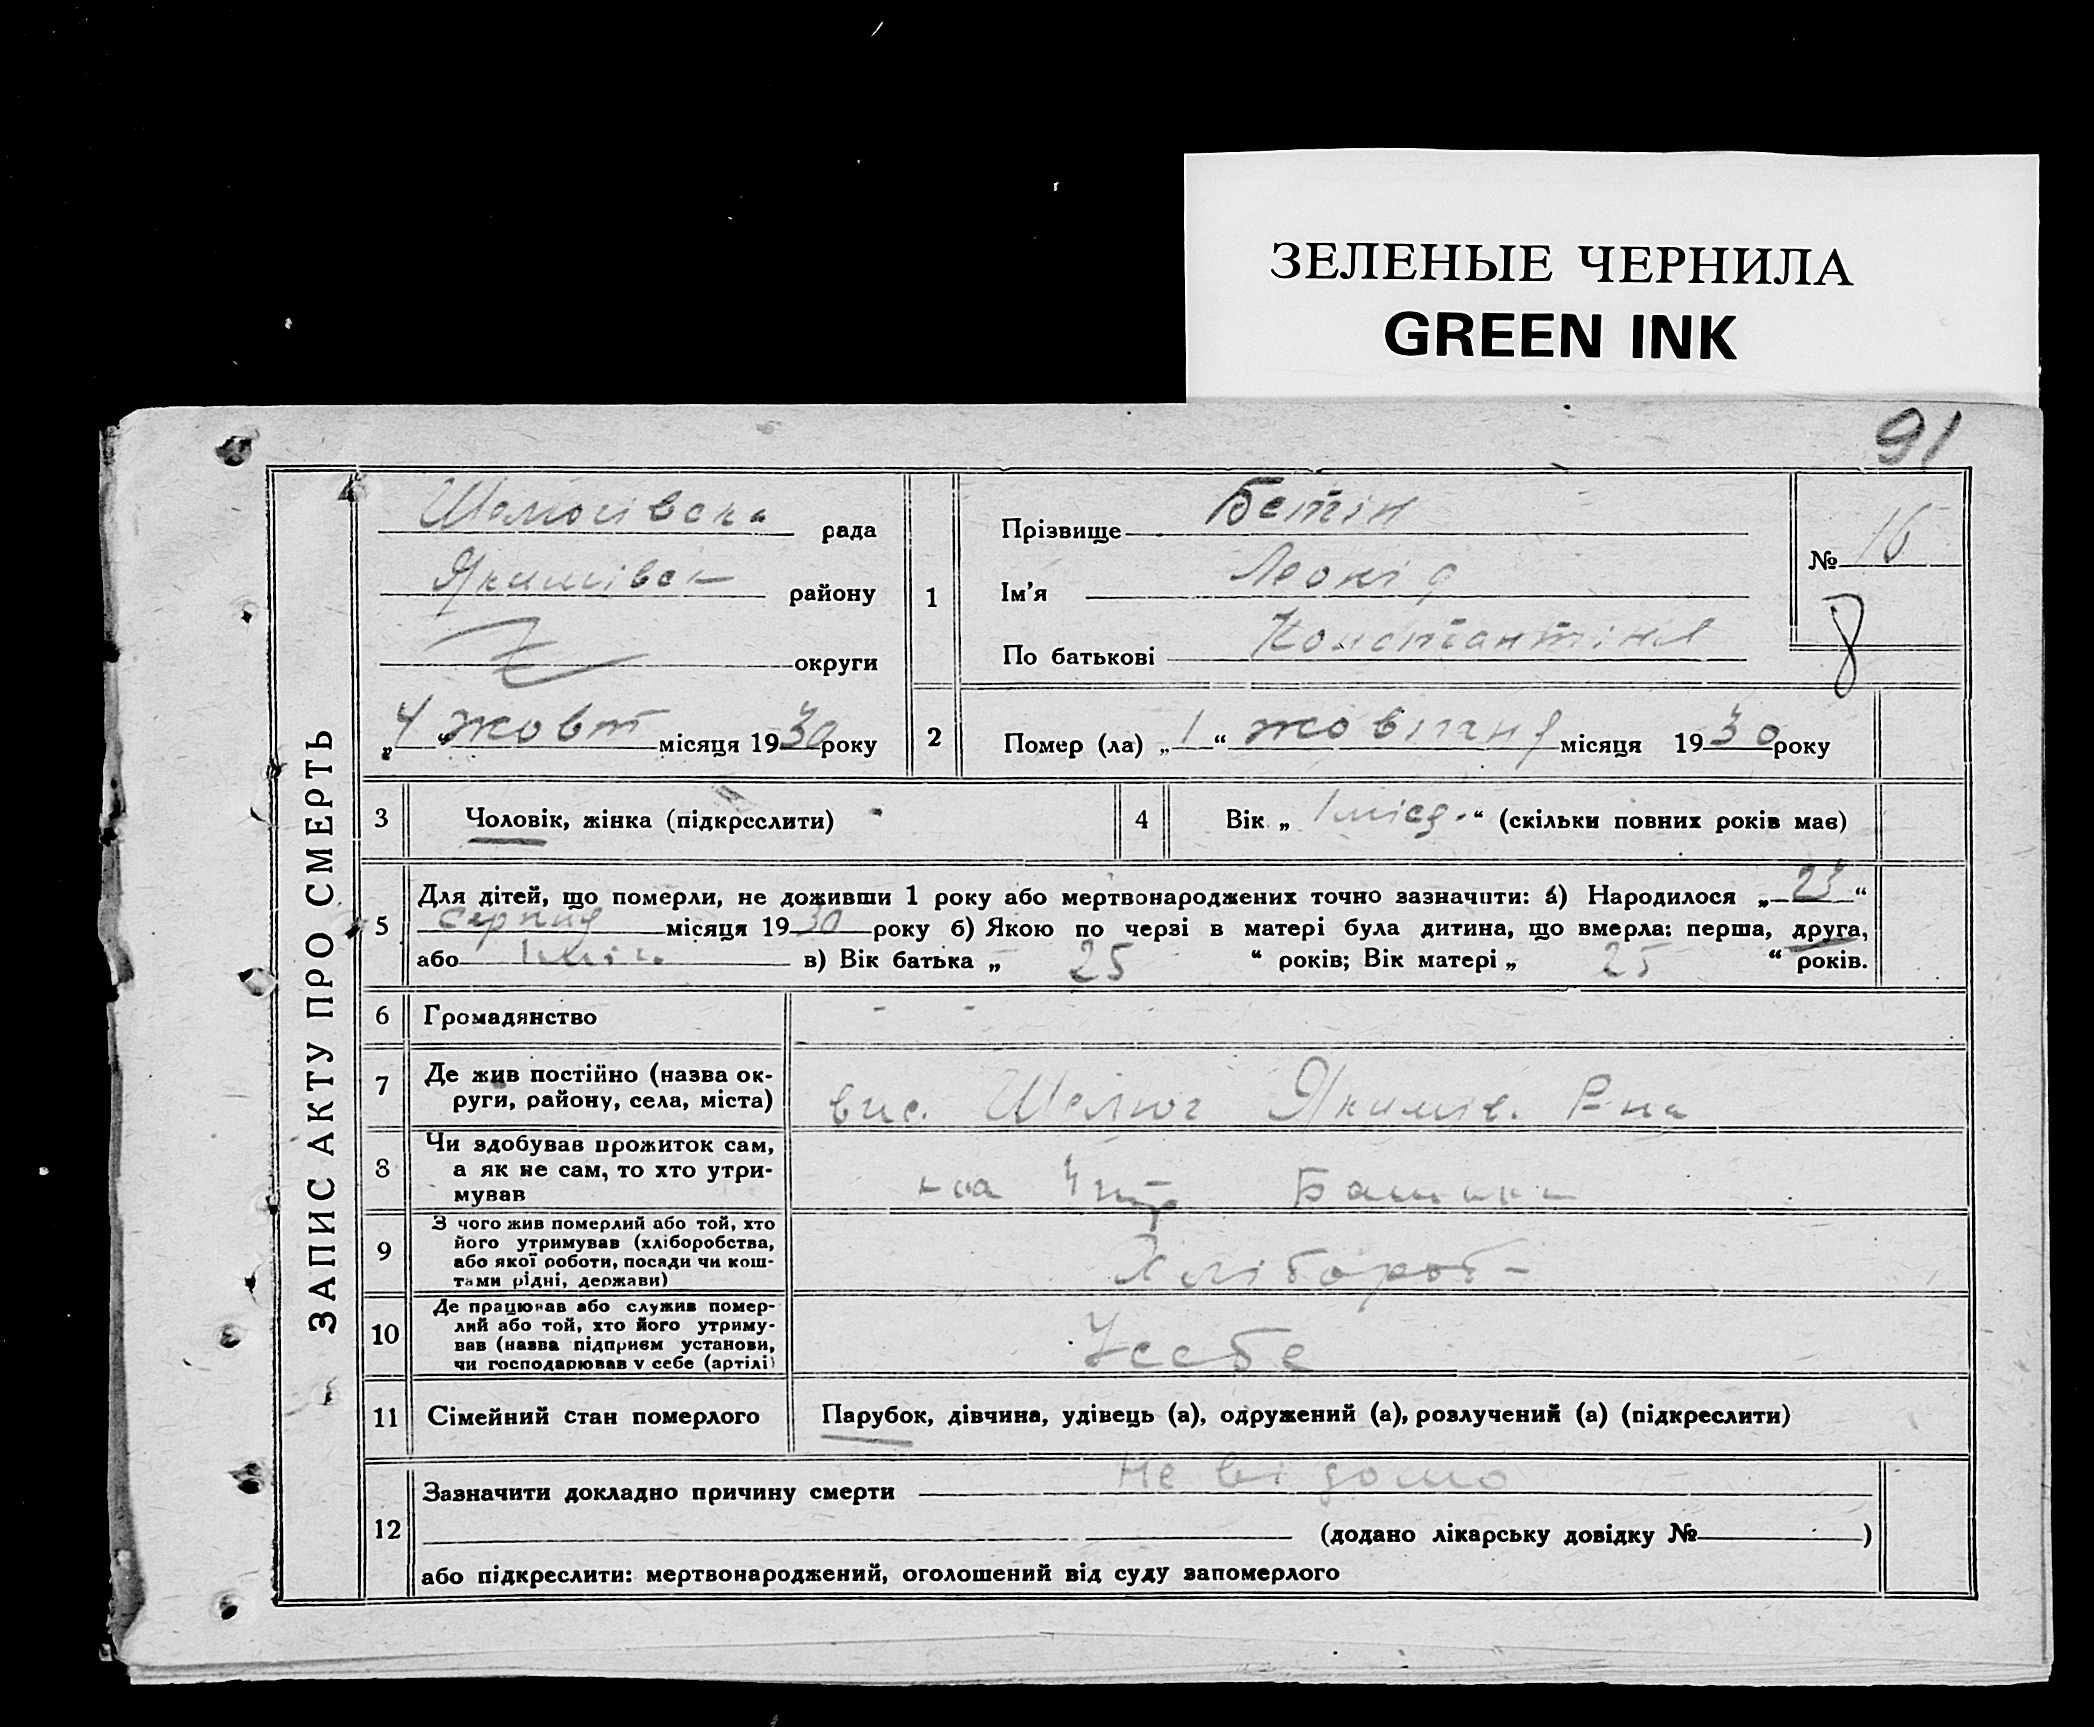 ЗЕЛЕНЫЕ ЧЕРНИЛА
GREEN INK
91
ЗАПИС АКТУ ПРО СМЕРТЬ
рада
Якимівськ району
округи
„4“ жовт місяця 1930 року
1
Прізвище Бетін
Ім'я Леонід
По батькові
№ 16
8
2 Помер (ла) „1“ жовтня місяця 1930 року
3 Чоловік, жінка (підкреслити)
4 Вік „1 міся.“ (скільки повних років має)
5 Для дітей, що померли, не доживши 1 року або мертвонароджених точно зазначити: а) Народилося „23“
серпня місяця 1930 року б) Якою по черзі в матері була дитина, що вмерла: перша, друга,
або в) Вік батька „25“ років; Вік матері „25“ років.
6 Громадянство - -
7 Де жив постійно (назва ок-
руги, району, села, міста)
вис. Шелюг Якимів. Р-на
8 Чи здобував прожиток сам,
а як не сам, то хто утри-
мував
на Утр
9 З чого жив померлий або той, хто
його утримував (хліборобства,
або якої роботи, посади чи кош-
тами рідні, держави)
Хлібороб-
10 Де працював або служив помер-
лий або той, хто його утриму-
вав (назва підприєм установи,
чи господарював у себе (артілі)
Усебе
11 Сімейний стан померлого
Парубок, дівчина, удівець (а), одружений (а), розлучений (а) (підкреслити)
12 Зазначити докладно причину смерти Не відомо
(додано лікарську довідку № )
або підкреслити: мертвонароджений, оголошений від суду запомерлого